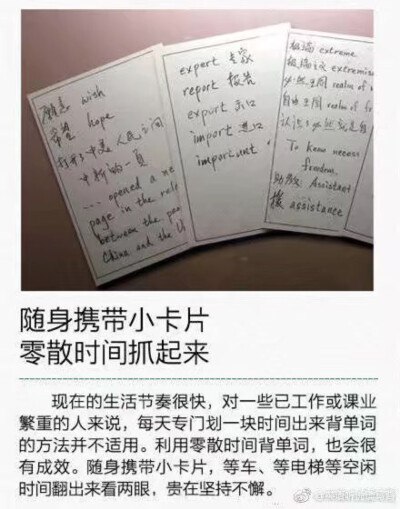 愿意 wish
希望 hope
打开了中美人民之间
中新的一页
... opened a ne
page in the rela
between the peo
China and the U
export 专家
report 报告
export 出口
import 进口
important
极端 extreme
极端主义 extremis
必然王国 realm of n
自由王国 realm of fr
认识了必然就是自
To know necess
freedom.
助教 Assistant
援 assistance
随身携带小卡片
零散时间抓起来
现在的生活节奏很快，对一些已工作或课业
繁重的人来说，每天专门划一块时间出来背单词
的方法并不适用。利用零散时间背单词，也会很
有成效。随身携带小卡片，等车、等电梯等空闲
时间翻出来看两眼，贵在坚持不懈。